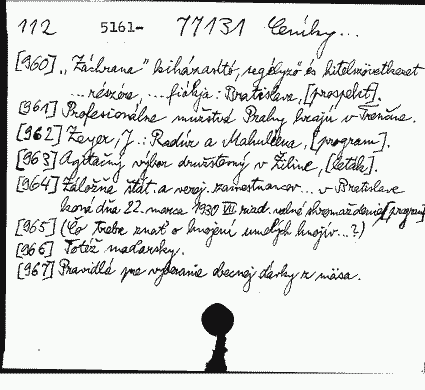 112 5161- 77131 Cenníky...
[960] „Záchrana" kiházasító, segélyző és hitelszövetkezet
... részére, ... fiókja: Bratislava, [prospekt].
[961] Profesionálne mužstvá Prahy hrajú v Trenčíne.
[962] Zeyer, J.: Radúz a Mahuliena, [program].
[963] Agitačný výbor družstevný v Žiline, [leták].
[964] Záložňa štát. a verej. zamestnancov... v Bratislave
koná dňa 22. marca 1930 VII riad. valné shromaždenie, [program]
[965] (Čo treba znať o hnojení umelých hnojív...?)
[966] Totéž maďarsky.
[967] Pravidlá pre vyberanie obecnej dávky z mäsa.